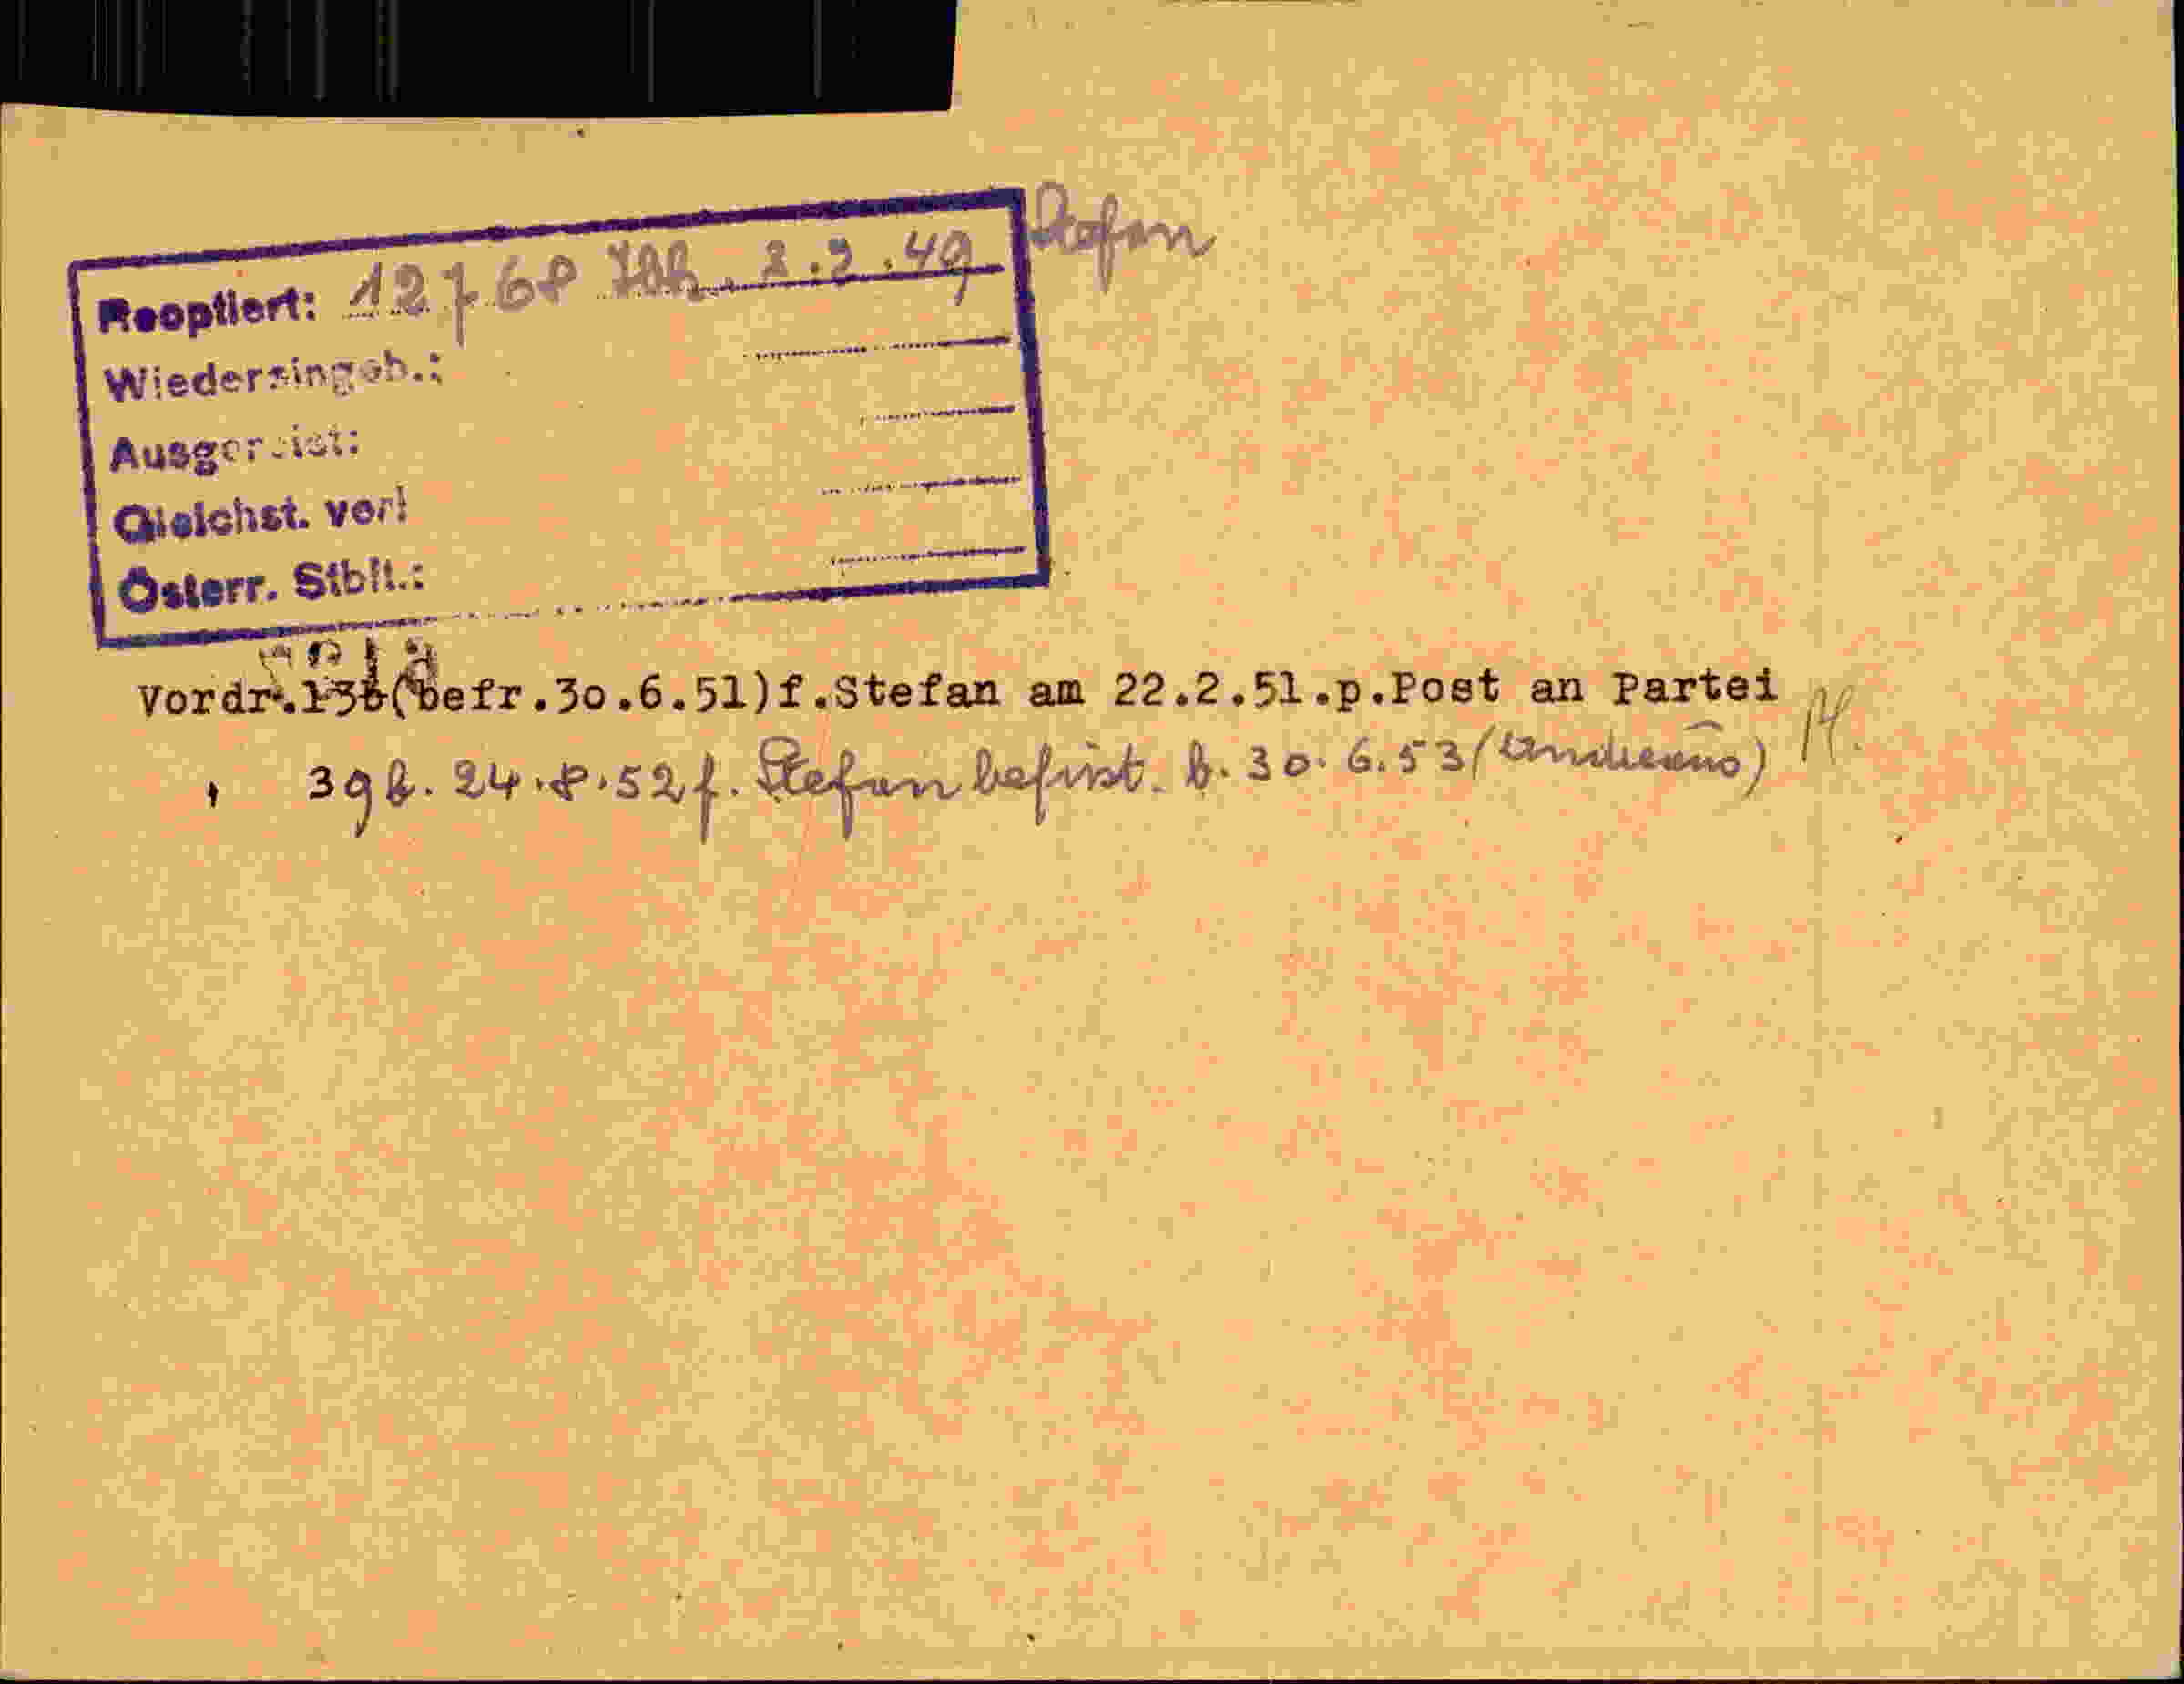 Reoptiert: 12768 2.2.49 Stefan
Wiedereingeb.:
Ausgereist:
Gleichst. vorl
Österr. Stblt.:
Vordr.13b(befr.30.6.51)f.Stefan am 22.2.51.p.Post an Partei
" 39b. 24.8.52 f. Stefan befrist. b. 30.6.53